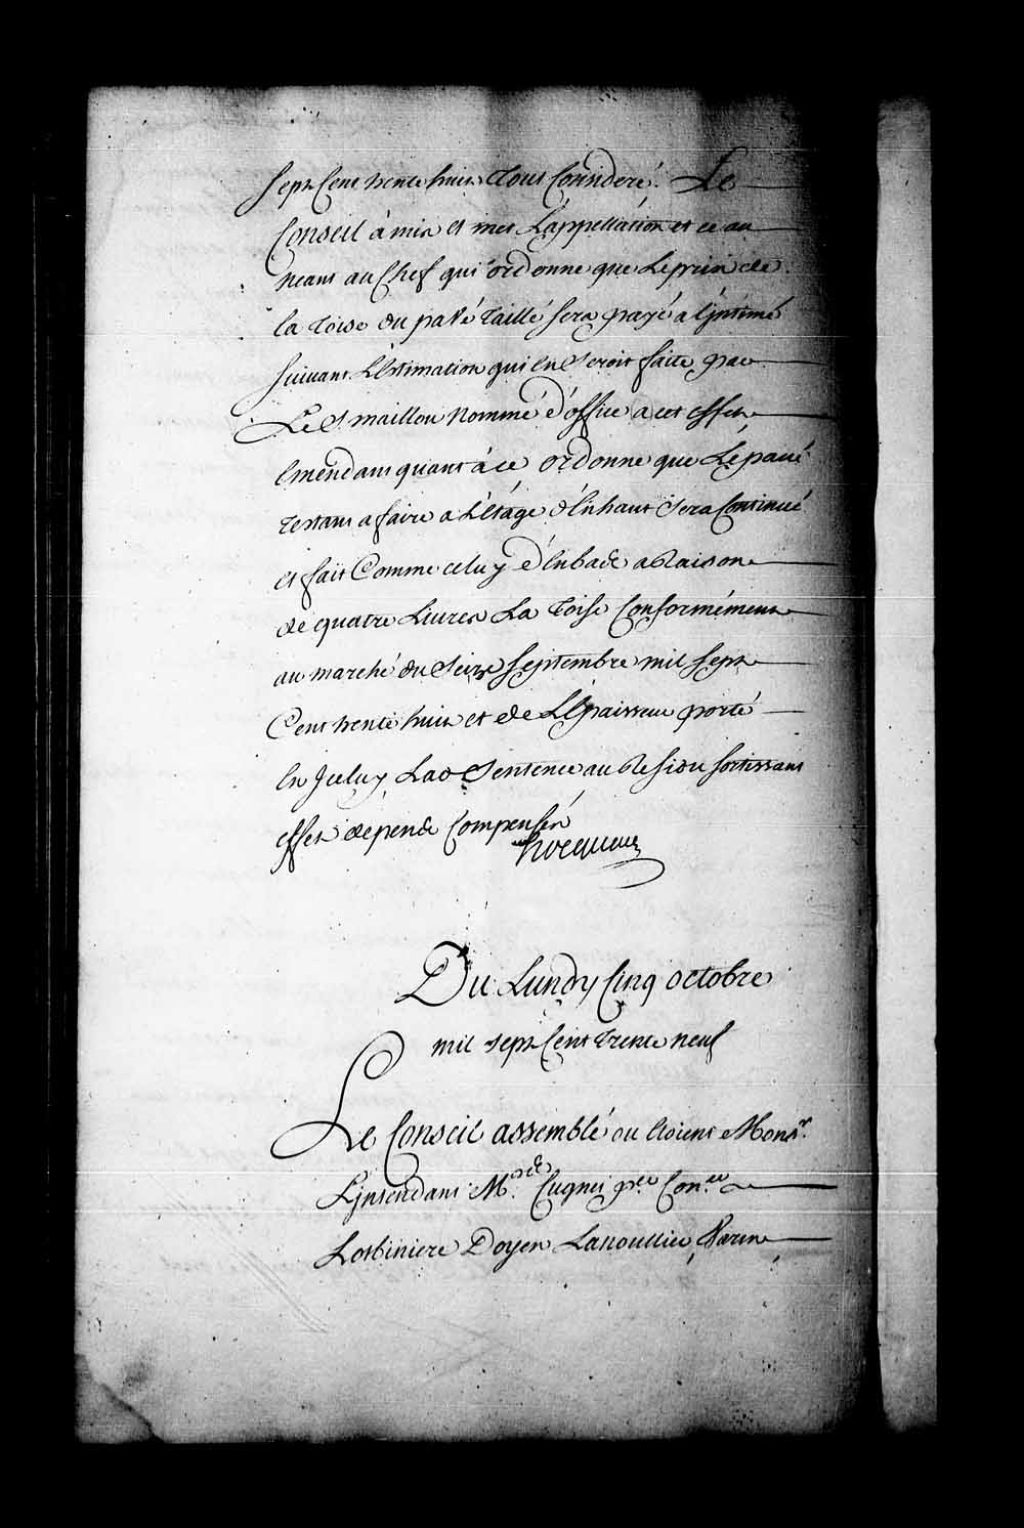 sept Cent trente huit Tout Consideré. Le
Conseil à mis et met L'appellation et ce au
neant au Chef qui ordonne que Le prix de
la Toise du pavé taillé sera payé a L'jntimé
suivant L'Estimation qui En Seroit faite par
Le S. maillou Nommé d'office a cet effet
Emendant quant à ce ordonne que Le pavé
restant a faire a L'étage d'Enhaut Sera Continué
et fait Comme celuy d'Enbas a Raison
de quatre Livres La Toise Conformément
au marché du Seize Septembre mil sept
Cent trente huit et de L'Epaisseur porté
En Jceluy Lad Sentence au Residu sortissant
effet dépens Compensés
hocquart
Du Lundy Cinq octobre
mil sept Cent Trente neuf
Le Conseil assemblé ou Etoient Monsr.
L'jntendant Mrs. de Cugnet pr. Coner.
Lotbiniere Doyen Lanoullier Varin